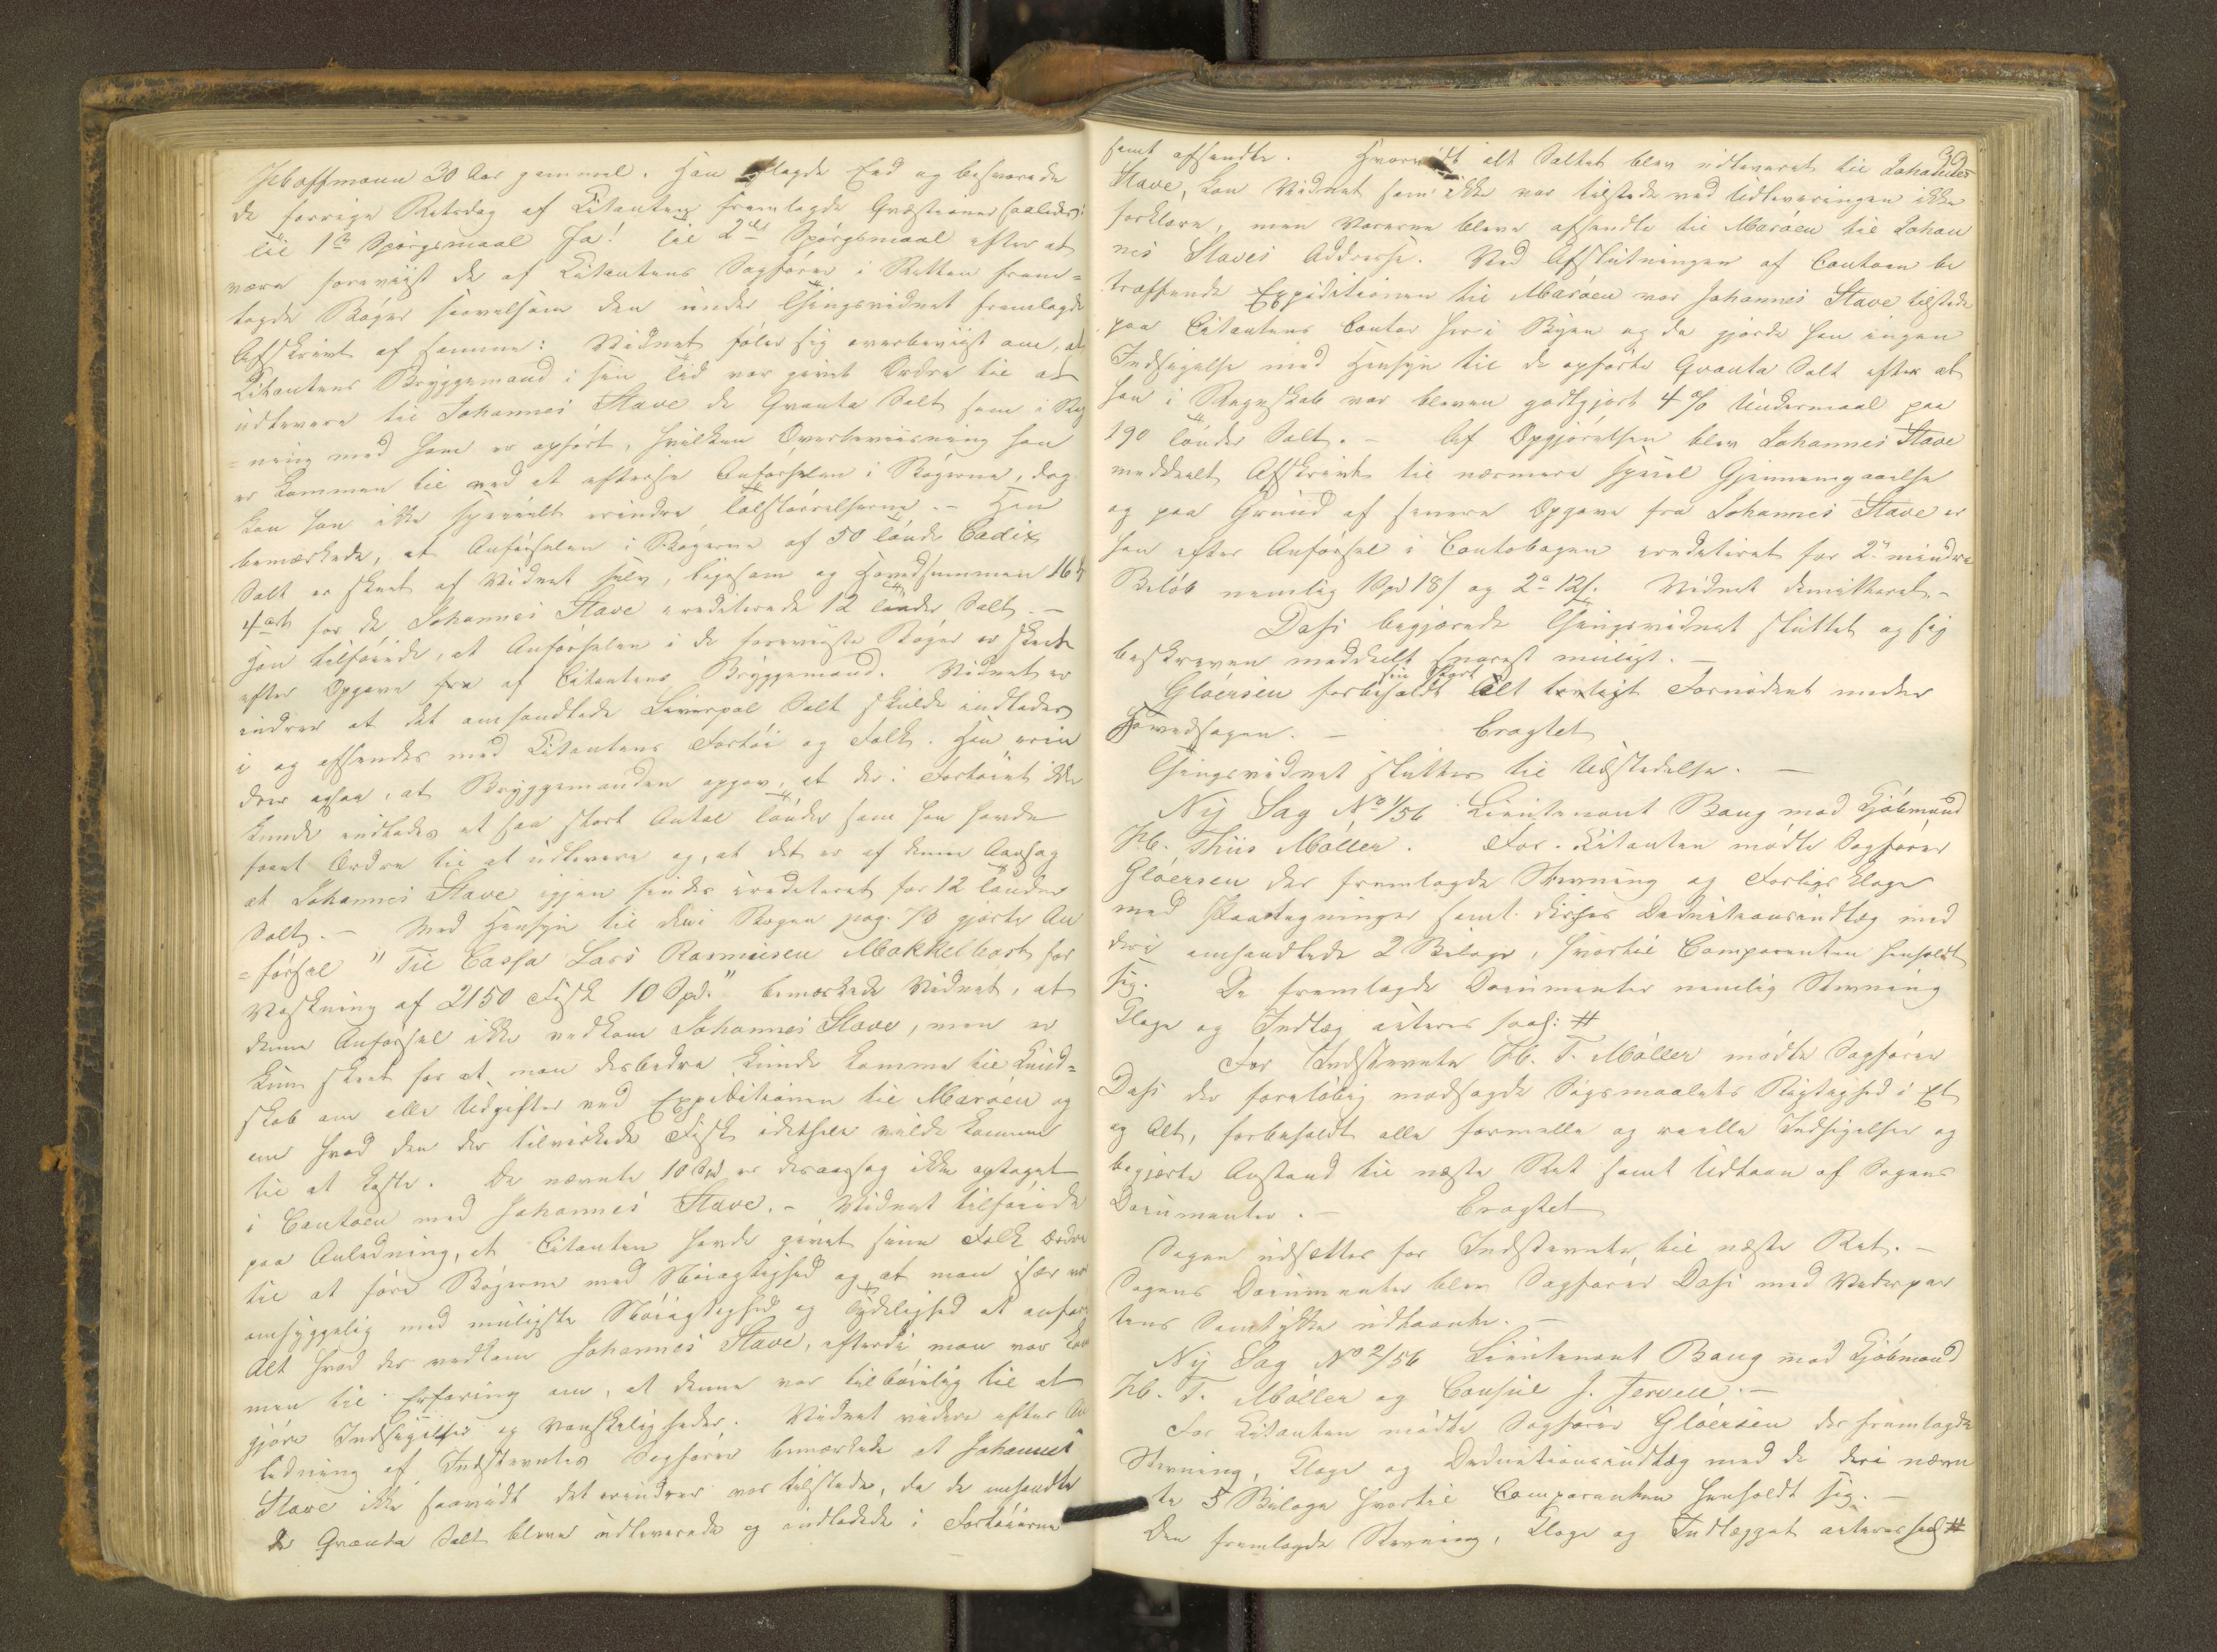 Hoffmann 30 Aar gammel. Han aflagde Eed og besvarede
de forrige Retsdag af Citanten fremlagde Qvæstioner saaledes:
til 1ste Spørgsmaal Ja! til 2det Spørgsmaal efter at
være foreviist de af Citantens Sagfører i Retten frem=
lagde Bøger saavelsom den under Thingsvidnet fremlagde
Afskrivt af samme: Vidnet føler sig overbeviist om, at
Citantens Bryggemand i sin Tid var givet Ordre til at
udlevere til Johannes Stave de Qvanta Salt som i Reg
=ning med ham er opført, hvilken Overbeviisning han
er kommen til ved at efterse Anførselen i Bøgerne, dog
kan han ikke specielt erindre Talstørrelserne. - Han
bemærkede, at Anførselen i Bøgerne af 50 Tønder Cadix
Salt er skeet af Vidnet selv, ligesom og Hovedsummen 16
for de Johannes Stave crediterede 12 Tønder Salt. -
Han tilføiede, at Anførselen i de foreviiste Bøger er skeet
efter Opgave fra af Citantens Bryggemand. Vidnet er
indrer at det omhandlede Liverpol Salt skulde indlades
i og afsendes med Citantens Fartøi og Folk. Han erin
drer ogsaa, at Bryggemanden opgav, at der i Fartøiet ikke
kunde indlades et saa stort Antal Tønder som han havde
faaet Ordre til at udlevere og, at det er af denne Aarsag
at Johannes Stave igjen findes crediteret for 12 Tønder
Salt. - Med Hensyn til den i Bogen pag. 78 gjorte An
=førsel "Til Cassa Lars Rasmusen Makkelbost for
Vaskning af 2150 Fisk 10 Spd." bemærkede Vidnet, at
denne Anførsel ikke vedkom Johannes Stave, men er
kun skeet for at man desbedre kunde komme til Kund=
skab om alle Udgifter ved Expeditionen til Marøen og
om hvad den der tilvirkede Fisk idethele vilde komme
til at koste. De nævnte 10 Spd er desaarsag ikke optaget
i Contoen med Johannes Stave. - Vidnet tilføiede
paa Anledning, at Citanten havde givet sine Folk Ordre
til at føre Bøgerne med Nøiagtighed og at man især var
omhyggelig med muligste Nøiagtighed og Tydelighed at anføre
Alt hvad der vedkom Johannes Stave, efterdi man var kom
men til Erfaring om, at denne var tilbøielig til at
gjøre Indsigelser og Vanskeligheder. Vidnet videre efter An
ledning af Indstevntes Sagfører bemærkede at Johannes
Stave ikke saavidt det erindrer var tilstede, da de omhandle
de Qvanta Salt bleve udleverede og indladede i Fartøierne
39
samt afsendte. Hvorvidt alt Saltet blev udleveret til Johannes
Stave, kan Vidnet som ikke var tilstede ved Udleveringen ikke
forklare, men Varerne bleve afsendte til Marøen til Johan
nes Staves Addresse. Ved Afslutningen af Contoen be
træffende Expeditionen til Marøen var Johannes Stave tilstede
paa Citantens Contor her i Byen og da gjorde han ingen
Indsigelse med Hensyn til de opførte Qvanta Salt efter at
han i Regnskab var bleven godtgjort 4 % Undermaal paa
190 Tønder Salt. - Af Opgjørelsen blev Johannes Stave
meddeelt Afskrivt til nærmere Gjennemgaaelse
og paa Grund af senere Opgave fra Johannes Stave er
han efter Anførsel i Contobogen crediteret for 2de mindre
Beløb nemlig 1 Spd 18 s og 2 - 12 s. Vidnet demitteret. -
Dahi begjærede Thingsvidnet sluttet og sig
beskreven meddeelt snarest muligt. -
Gløersen forbeholdt sin Part Alt tienligt Fornødent under
Hovedsagen. - Eragtet
Thingsvidnet sluttes til Udstedelse. -
Ny Sag No 1/56 Lieutenant Baug mod Kjøbmand
H. Thiis Møller. For Citanten mødte Sagfører
Gløersen der fremlagde Stevning og Forligs Klage
med Paategninger samt disses Deductionsindlæg med
deri omhandlede 2 Bilage, hvortil Comparenten henholdt
sig. De fremlagde Documenter nemlig Stevning
Klage og Indlæg acteres saal: #
For Indstevnte H. T. Møller mødte Sagfører
Dahi der foreløbig modsagde Søgsmaalets Rigtighed i Et
og Alt, forbeholdt alle formelle og reelle Indsigelser og
begjærte Anstand til næste Ret samt Udlaan af Sagens
Documenter. - Eragtet
Sagen udsettes for Indstevnte til næste Ret. -
Sagens Documenter blev Sagfører Dahi med Vederpar
tens Samtykke udlaante. -
Ny Sag No 2/56 Lieutenant Baug mod Kjøbmand
H. T. Møller og Consul J. Jervell. -
For Citanten mødte Sagfører Gløersen der fremlagde
Stevning, Klage og Deductionsindlæg med de deri nævn
te 5 Bilage hvortil Comparenten henholdt sig. -
Den fremlagde Stevning, Klage og Indlægget acteres saal #